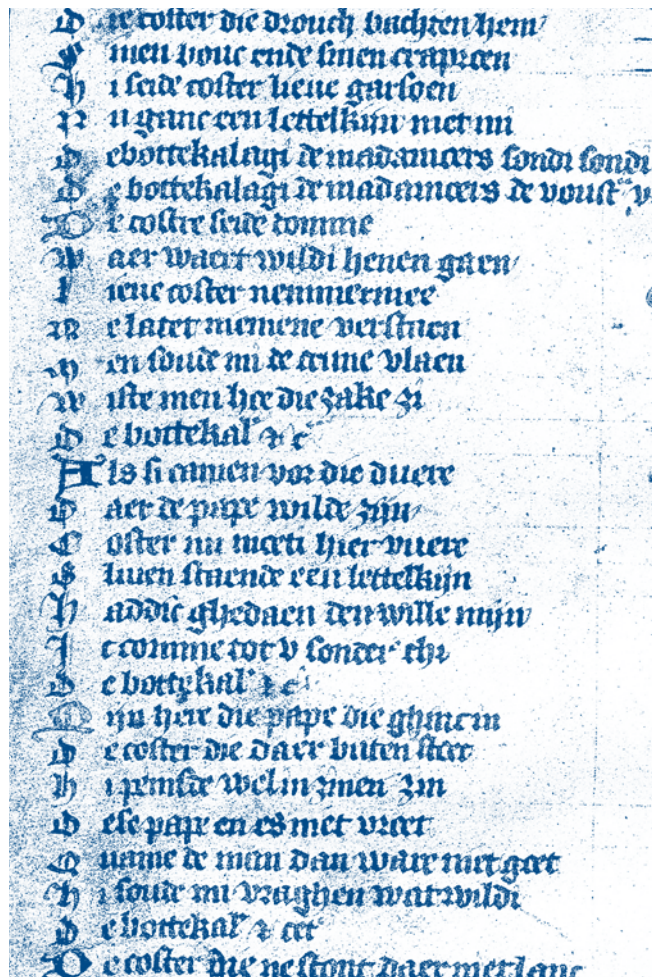 D ie coster die drouch bachten hem
S inen bouc ende sinen craproen
H i seide coster lieue garsoen
N u ganc een lettelkijn met mi
D e bottekalagi de madamcers sondi sondi
D e bottekalagi de madamcers de voust
D e costre seide domme
W aer waert wildi henen gaen
L ieue coster nemmermee
N e latet niemene verstaen
M en soude mi de crune vlaen
W iste men hoe die zake zi
D e bottekal' & c
A ls si camen vor die duere
D aer de pape wilde zijn
C oster nu moeti hier vuere
B liuen staende een lettelkijn
H addic ghedaen den wille mijn
I c comme tot v sonder
D e bottekal' & c
M ijn here die pape die ghinc in
D e coster die daer buten steet
H i peinsde wel in zinen zin
D ese pape en es niet vreet
Q uame de man dan ware niet geet
H i soude mi vraghen wat wildi
D e bottekal' & cet
D e coster die ne stont daer niet lanc